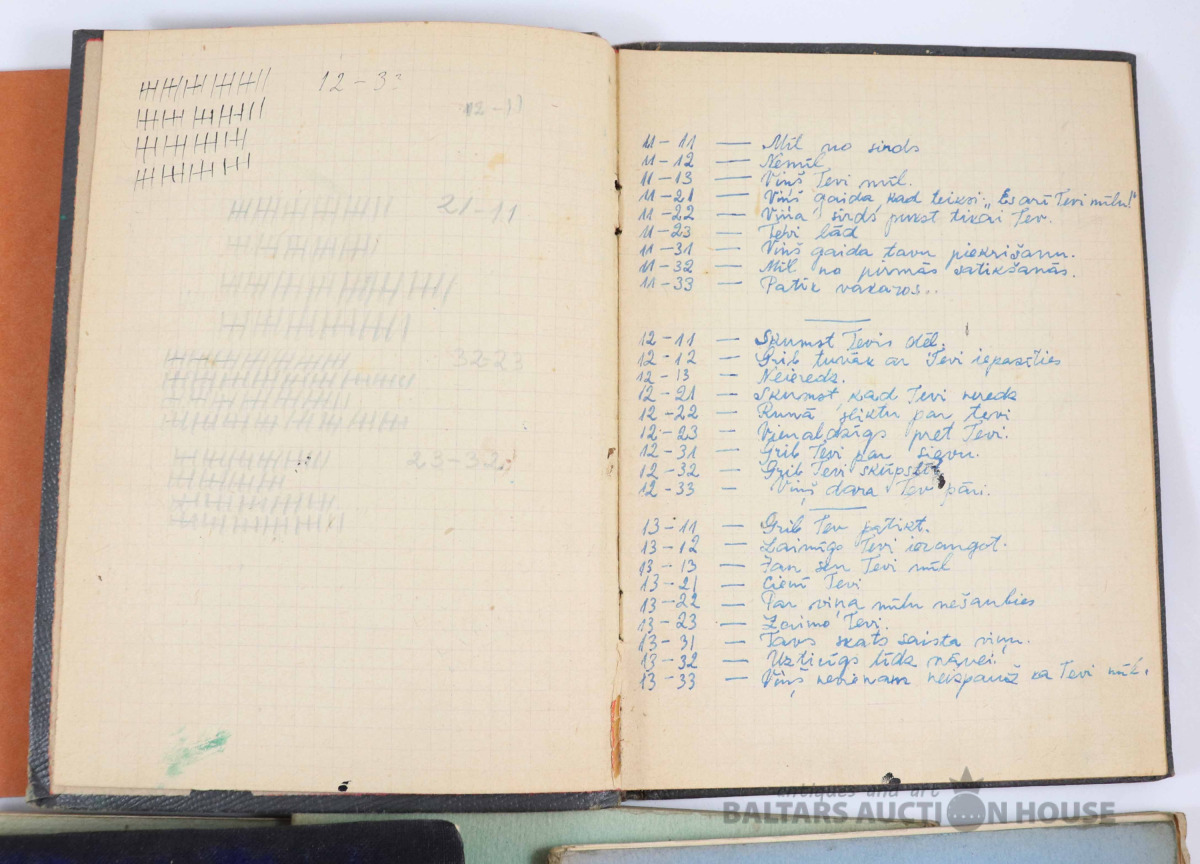 12-3
12-11
21-11
32-23
23-32
11-11 — Mīl no sirds
11-12 — Nemīl
11-13 — Viņš Tevi mīl.
11-21 — Viņš gaida, kad teiksi „Es arī Tevi mīlu!"
11-22 — Viņa sirds pukst tikai Tev.
11-23 — Tevi lād
11-31 — Viņš gaida tavu piekrišanu.
11-32 — Mīl no pirmās satikšanās.
11-33 — Patīk vakaros..
12-11 — Skumst Tevis dēļ.
12-12 — Grib tuvāk ar Tevi iepazīties
12-13 — Neieredz.
12-21 — Skumst, kad Tevi neredz
12-22 — Runā sliktu par tevi
12-23 — Vienaldzīgs pret Tevi.
12-31 — Grib Tevi par sievu.
12-32 — Grib Tevi skūpstīt
12-33 — Viņš dara Tev pāri.
13-11 — Grib Tev patikt.
13-12 — Laimīgs Tevi ieraugot.
13-13 — Jau sen Tevi mīl
13-21 — Cienī Tevi
13-22 — Par viņa mīlu nešaubies
13-23 — Zaimo Tevi.
13-31 — Tavs skats saista viņu.
13-32 — Uzticīgs līdz nāvei.
13-33 — Viņš nevienam neizpauž ka Tevi mīl.
antiques and art
BALTARS AUCTION HOUSE